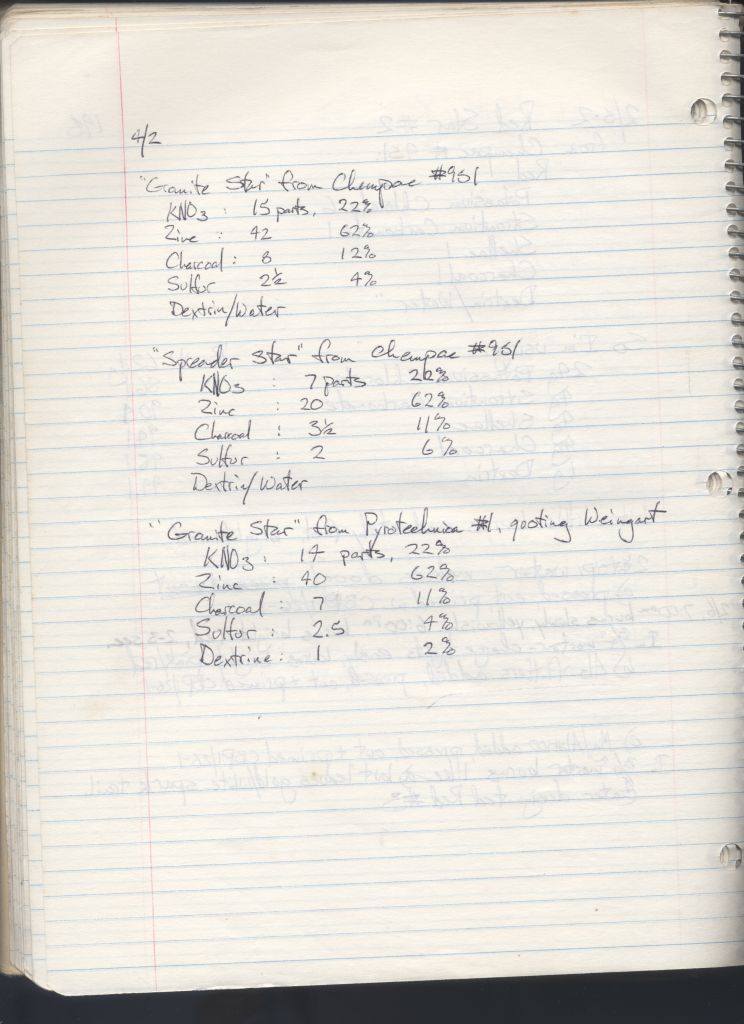 4/2
"Granite Star" from Chempac #951
KNO3 : 15 parts, 22%
Zinc : 42 62%
Charcoal : 8 12%
Sulfur 2½ 4%
Dextrin/Water
"Spreader Star" from Chempac #951
KNO3 : 7 parts 22%
Zinc : 20 62%
Charcoal : 3½ 11%
Sulfur : 2 6%
Dextrin/Water
"Granite Star" from Pyrotechnica #1, quoting Weingart
KNO3 : 14 parts, 22%
Zinc : 40 62%
Charcoal : 7 11%
Sulfur : 2.5 4%
Dextrine : 1 2%